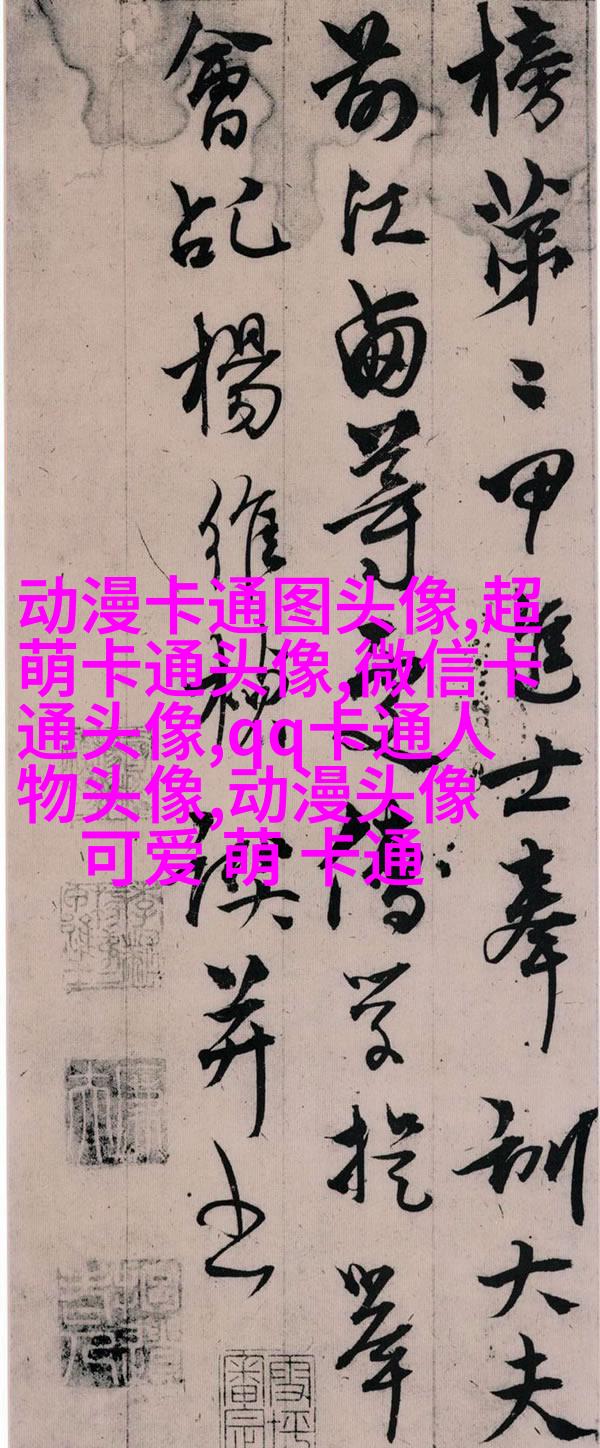 榜第二甲進士奉訓大夫
前江西等處儒學提舉
會稽楊維禎譔并書
动漫卡通图头像,超
萌卡通头像,微信卡
通头像,qq卡通人
物头像,动漫头像
可爱 萌 卡通